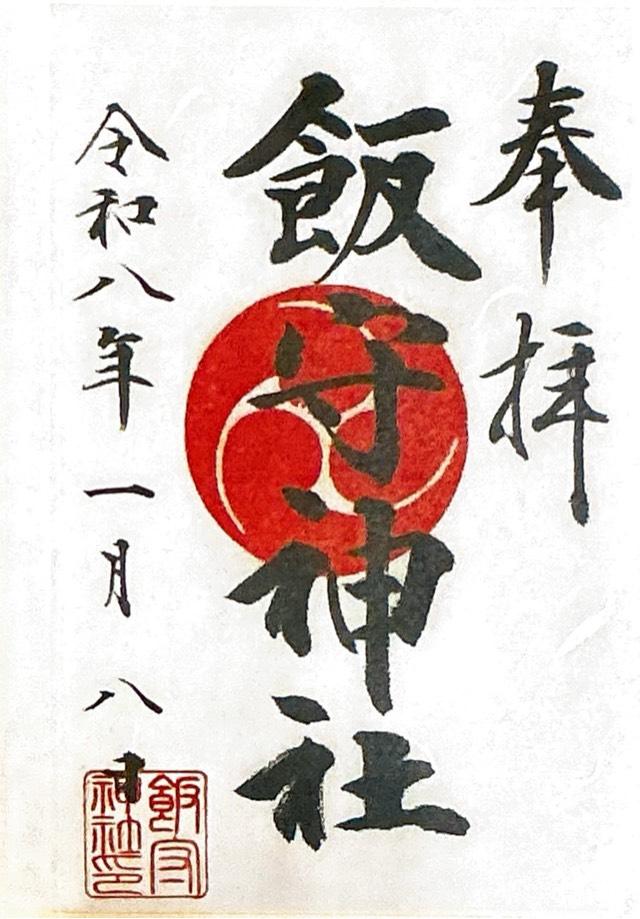 奉拝
飯守神社
令和八年一月八日
飯守
神社印